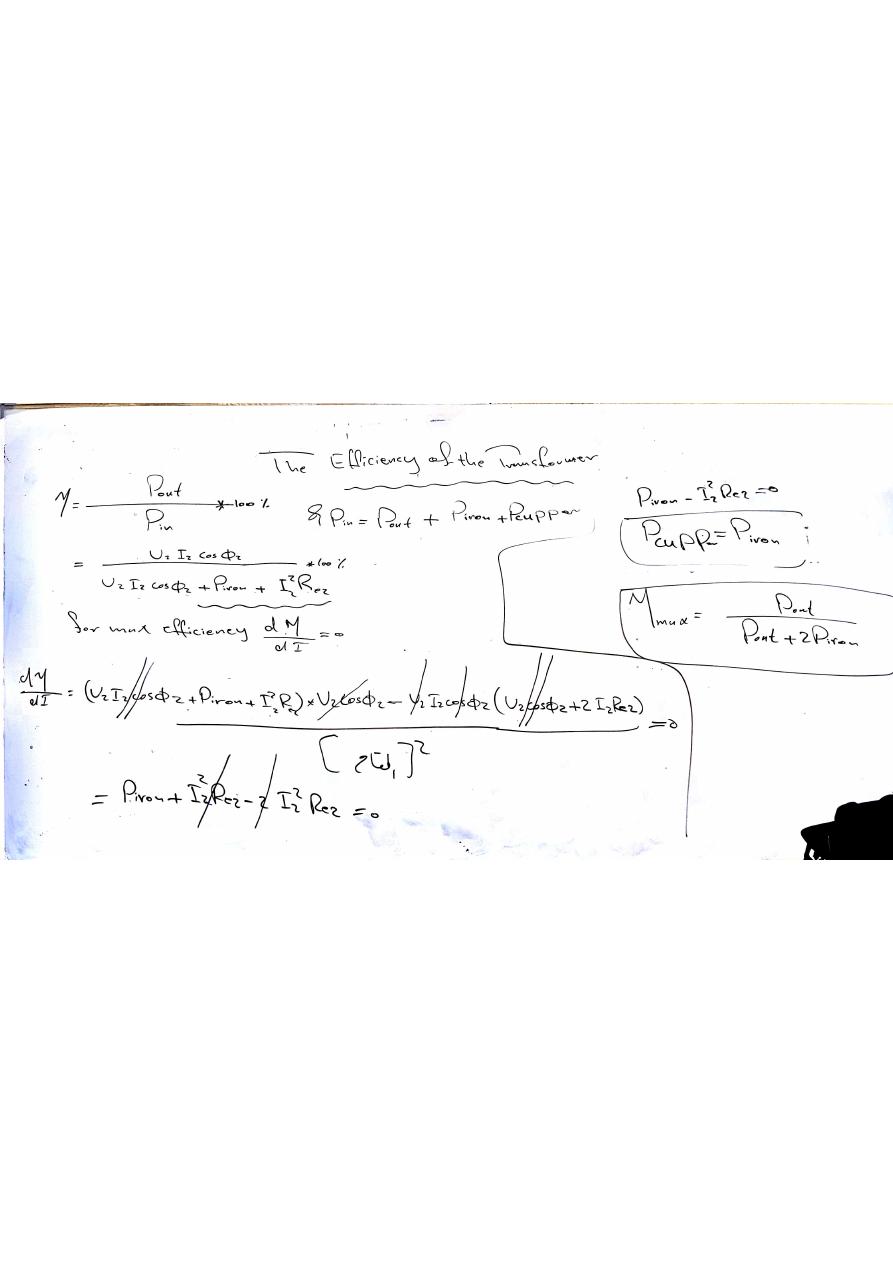 The Efficiency of the Transformer
η = Pout / Pin * 100 % & Pin = Pout + Piron + Pcupper
= U₂ I₂ cos Φ₂ / U₂ I₂ cos Φ₂ + Piron + I₂² Re₂ * 100 %
for max efficiency dη / dI = 0
dη / dI = (U₂ I₂ cos Φ₂ + Piron + I₂² Re₂) × U₂ cos Φ₂ - U₂ I₂ cos Φ₂ (U₂ cos Φ₂ + 2 I₂ Re₂) / [ ]² = 0
= Piron + I₂² Re₂ - 2 I₂² Re₂ = 0
Piron - I₂² Re₂ = 0
Pcupp = Piron
ηmax = Pout / Pout + 2 Piron